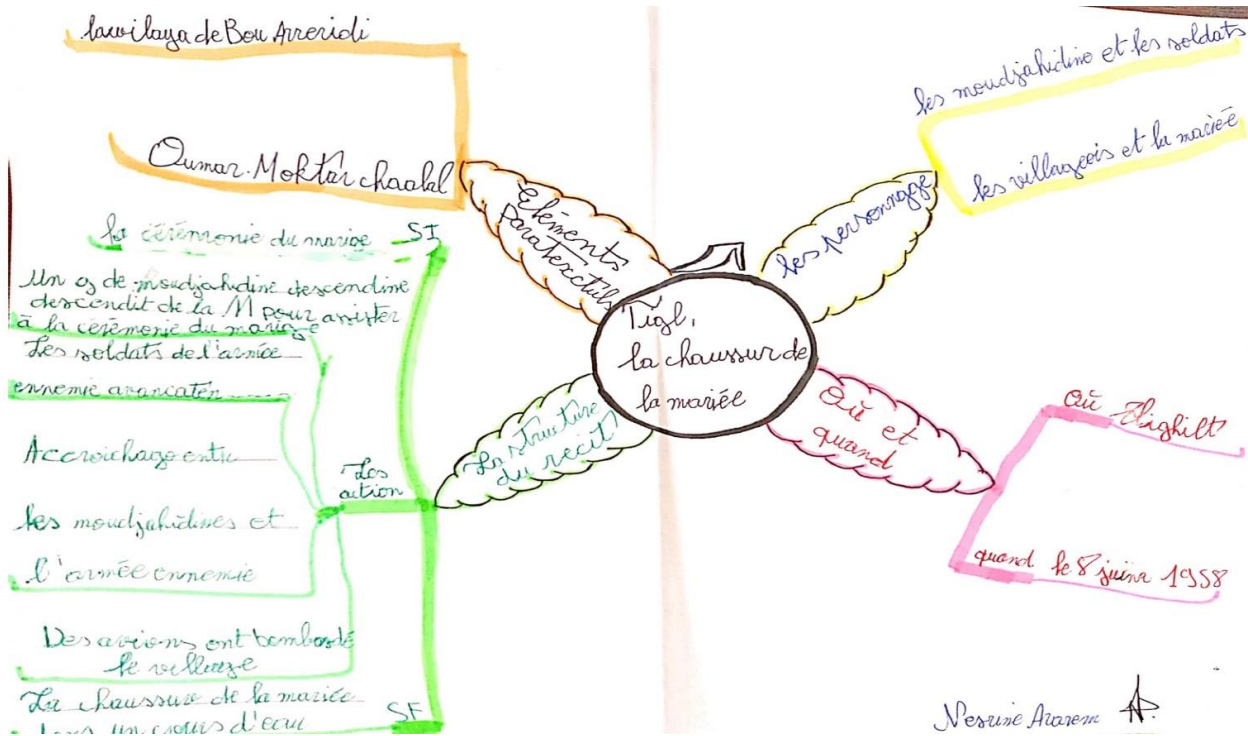 la wilaya de Bou Arreridj
Oumar. Moktar chaalal
Eléments
Paratextuls
les personnage
les moudjahidine et les soldats
les villageois et la mariée
Tigl,
la chaussur de
la mariée
Où et
quand
où Thighilt
quand le 8 juinr 1958
La structure
du récit
SI
la cérémonie du marige
Les
action
Un de moudjahidine descendine
descendit de la M pour assister
à la cérémonie du mariage
Les soldats de l'armée
ennemie avancatén
Accroichage entre
les moudjahidines et
l'armée ennemie
Des avions ont bombardé
le village
SF
La chaussure de la mariée
dans un cours d'eau
Nesrine